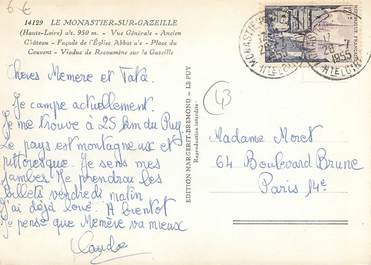 6€
14129 LE MONASTIER-SUR-GAZEILLE
(Haute-Loire) alt. 950 m. - Vue Générale - Ancien
Château - Façade de l'Église Abbat'e - Place du
Couvent - Viaduc de Recoumène sur la Gazeille
Chers Mémère et Tata.
Je campe actuellement.
Je me trouve à 25 km du Puy
Le pays est montagneux et
pittoresque. Je sens mes
jambes. Je prendrai les
billets vendredi matin
J'ai déjà loué. A bientôt
Je pense que Mémère va mieux
Claude
EDITION MARGERIT-BREMOND - LE PUY
Reproduction interdite
43
MONASTIER
HTE LOIRE
28-7
1955
Madame Moret
64 Boulevard Brune
Paris 14e